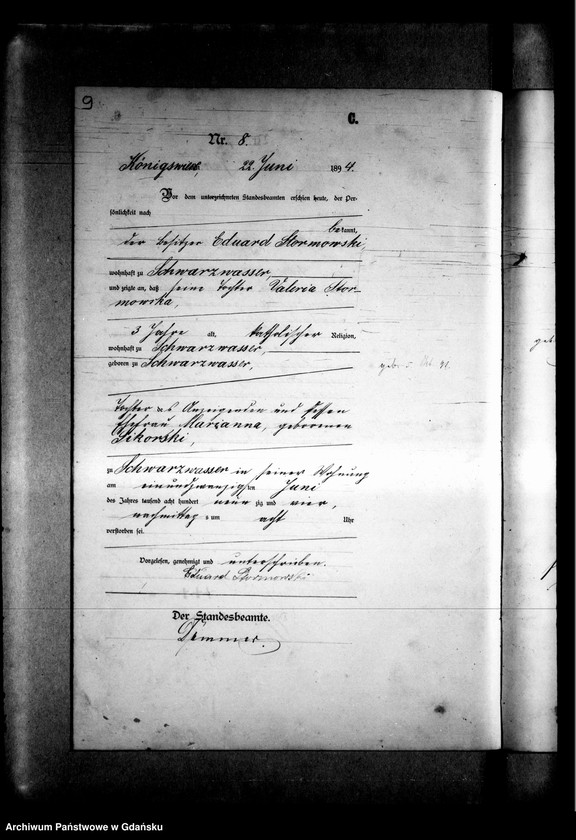 9
C.
Nr. 8.
Königswiese 22. Juni 1894.
Vor dem unterzeichneten Standesbeamten erschien heute, der Per-
sönlichkeit nach
bekannt,
der Besitzer Eduard Stormowski,
wohnhaft zu Schwarzwasser,
und zeigte an, daß seine Tochter Valeria Stor-
mowska,
3 Jahre alt, katholischer Religion,
wohnhaft zu Schwarzwasser,
geboren zu Schwarzwasser,
geb. 5 Okt. 91.
Tochter des Anzeigenden und dessen
Ehefrau Marianna, geborenen
Sikorski,
zu Schwarzwasser in seiner Wohnung
am einundzwanzigsten Juni
des Jahres tausend acht hundert neunzig und vier,
nachmittags um acht Uhr
verstorben sei.
Vorgelesen, genehmigt und unterschrieben.
Eduard Stormowski
Der Standesbeamte.
Dümmer.
Archiwum Państwowe w Gdańsku